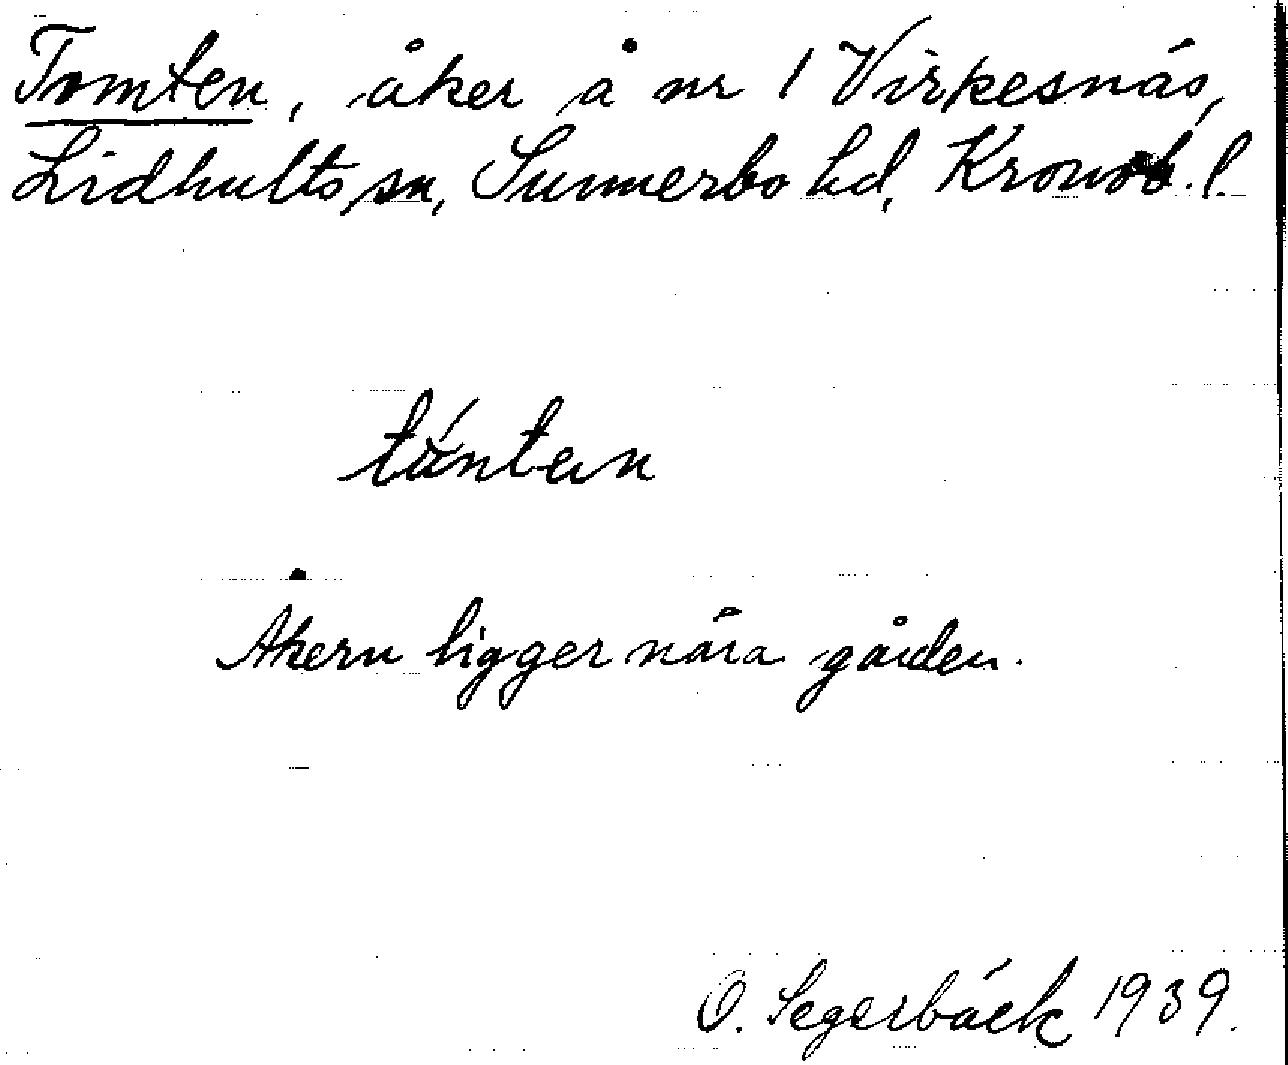 Tomten, åker å nr 1 Virkesnäs,
Lidhults sn, Sunnerbo hd, Kronob. l.
tónten
Åkern ligger nära gården.
O. Segerbäck 1939.